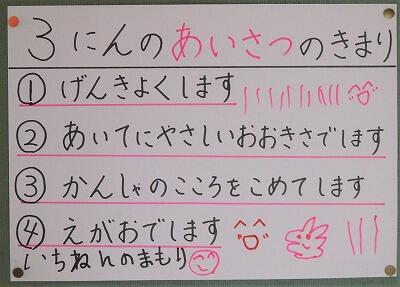 3にんのあいさつのきまり
① げんきよくします
② あいてにやさしいおおきさでします
③ かんしゃのこころをこめてします
④ えがおでします
いちねんのまもり